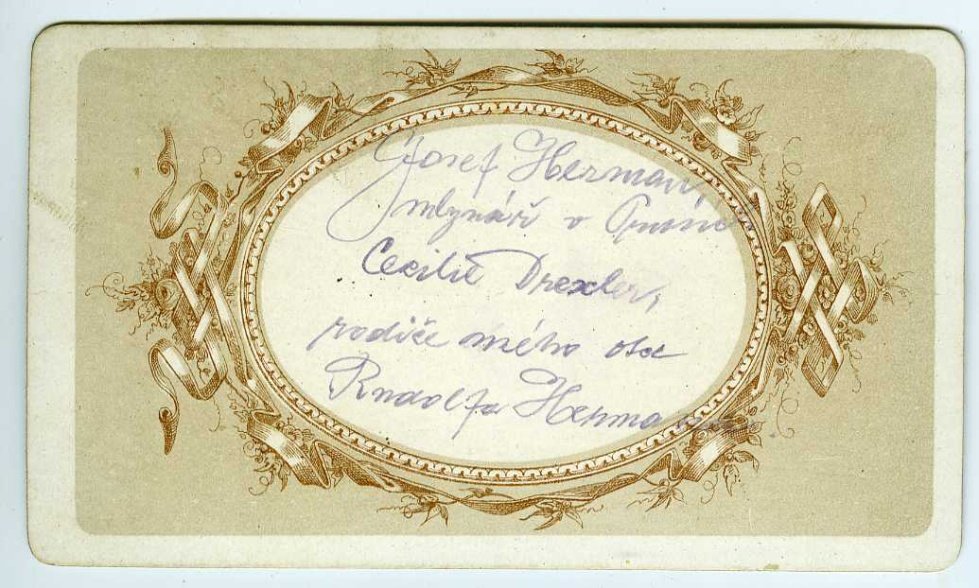 Josef Herman,
mlynář v
Cecilie Drexler,
rodiče mého otce
Rudolfa Hermana